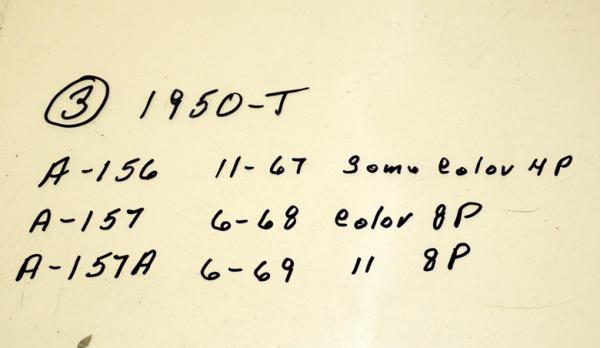 ③ 1950-T
A-156 11-67 Some Color 4P
A-157 6-68 Color 8P
A-157A 6-69 11 8P